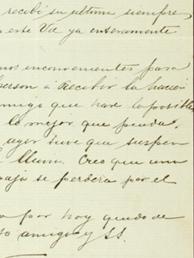 recibí su última siempre
este Vd ya enteramente
inconvenientes para
person a recibir la
amigo que haré lo posible
lo mejor que pueda,
ayer tuve que suspen
lluvia. Creo que un
se perdera por el
por hoy quedo de
amigo y SS.